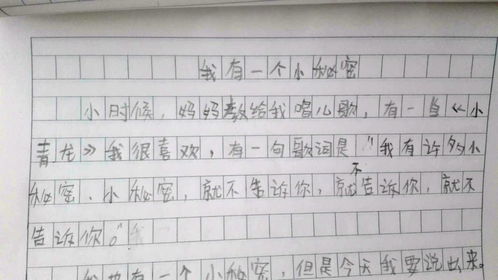 我有一个小秘密
小时候，妈妈教给我唱儿歌，有一当《小
青龙》我很喜欢，有一句歌词是"我有许多小
秘密、小秘密，就不告诉你，就不告诉你，就不
告诉你。"
我也有一个小秘密，但是今天我要说出来。